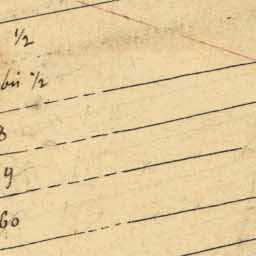 ½
bii ½
8
9
60